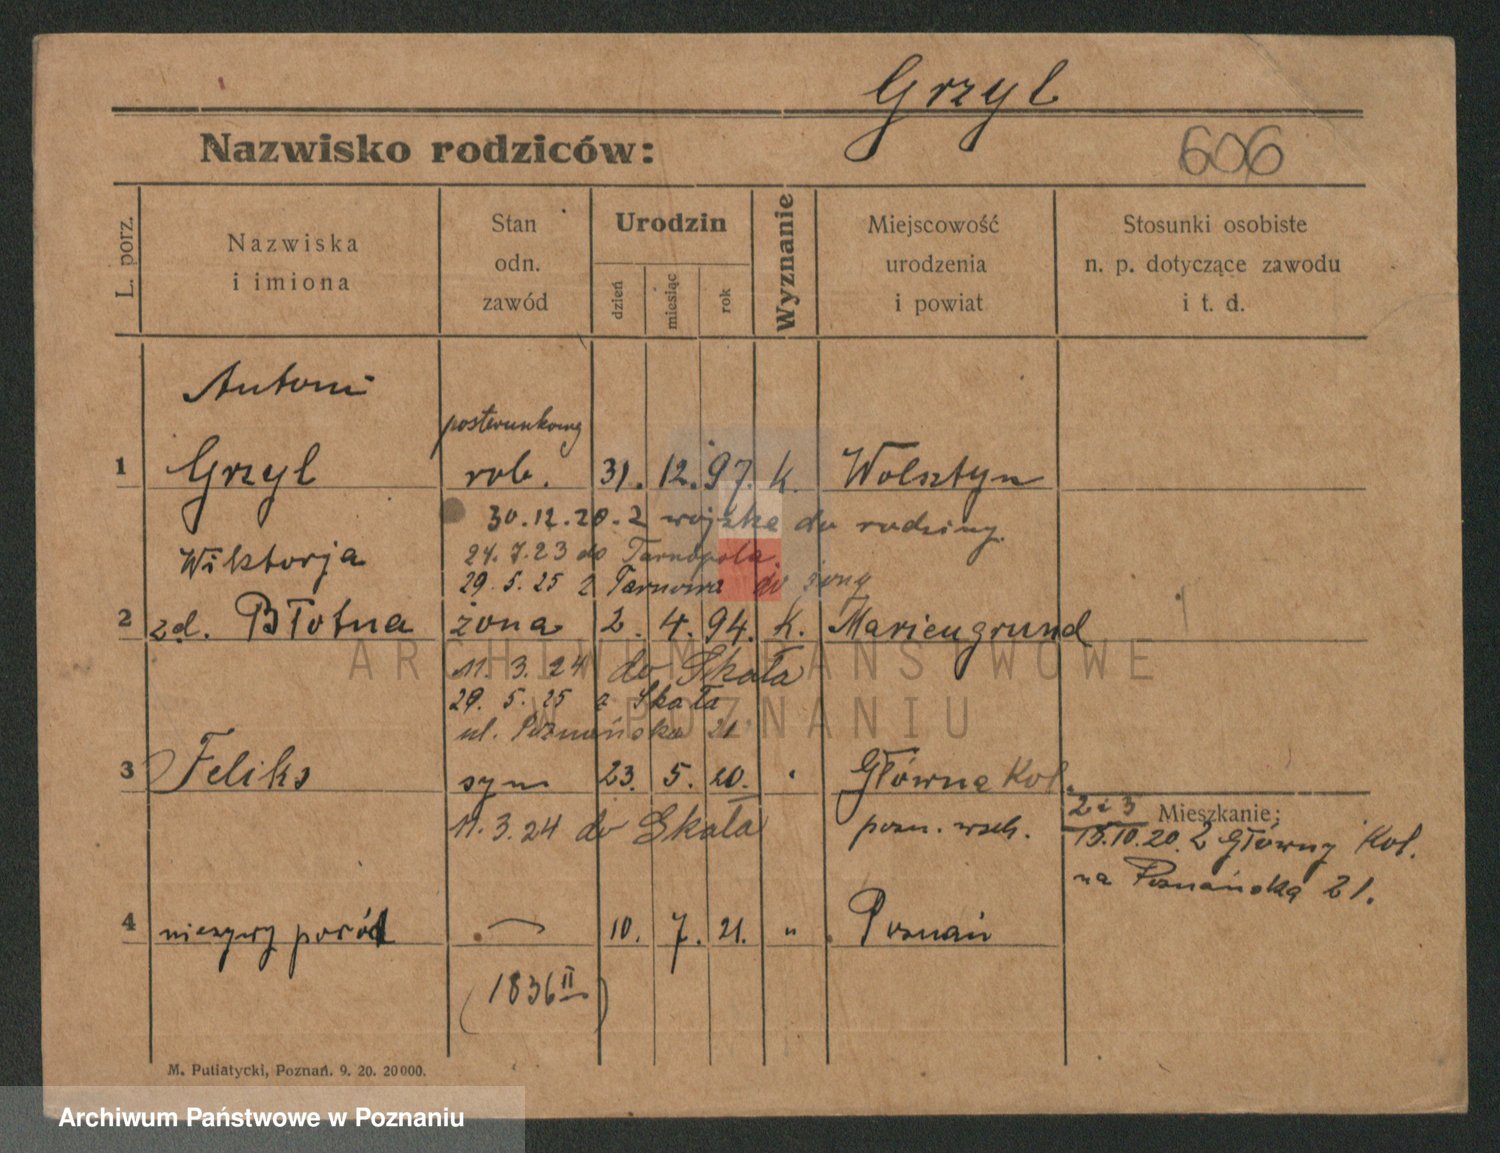 Grzyl
Nazwisko rodziców:
606
L. porz.
Nazwiska
i imiona
Stan
odn.
zawód
Urodzin
dzień
miesiąc
rok
Wyznanie
Miejscowość
urodzenia
i powiat
Stosunki osobiste
n. p. dotyczące zawodu
i t. d.
Antoni
posterunkowy
1 Grzyl rob. 31. 12. 97. K. Wolsztyn
30.12.20. z wojska do rodziny.
Wiktorja 24.7.23 do Tarnopola.
29.5.25 z Tarnowa do żony
2 zd. Błotna żona 2. 4. 94. K. Mariengrund
11.3.24 do Skała
29.5.25 z Skała
ul. Poznańska 21
3 Feliks syn 23. 5. 20. " Główna Kol.
11.3.24 do Skała pozn. wsch.
2 i 3 Mieszkanie:
15.10.20. z Główny Kol.
na Poznańską 21.
4 nieżywy poród — 10. 7. 21. " Poznań
(1836 II)
M. Putiatycki, Poznań. 9. 20. 20 000.
ARCHIWUM PAŃSTWOWE
W POZNANIU
Archiwum Państwowe w Poznaniu